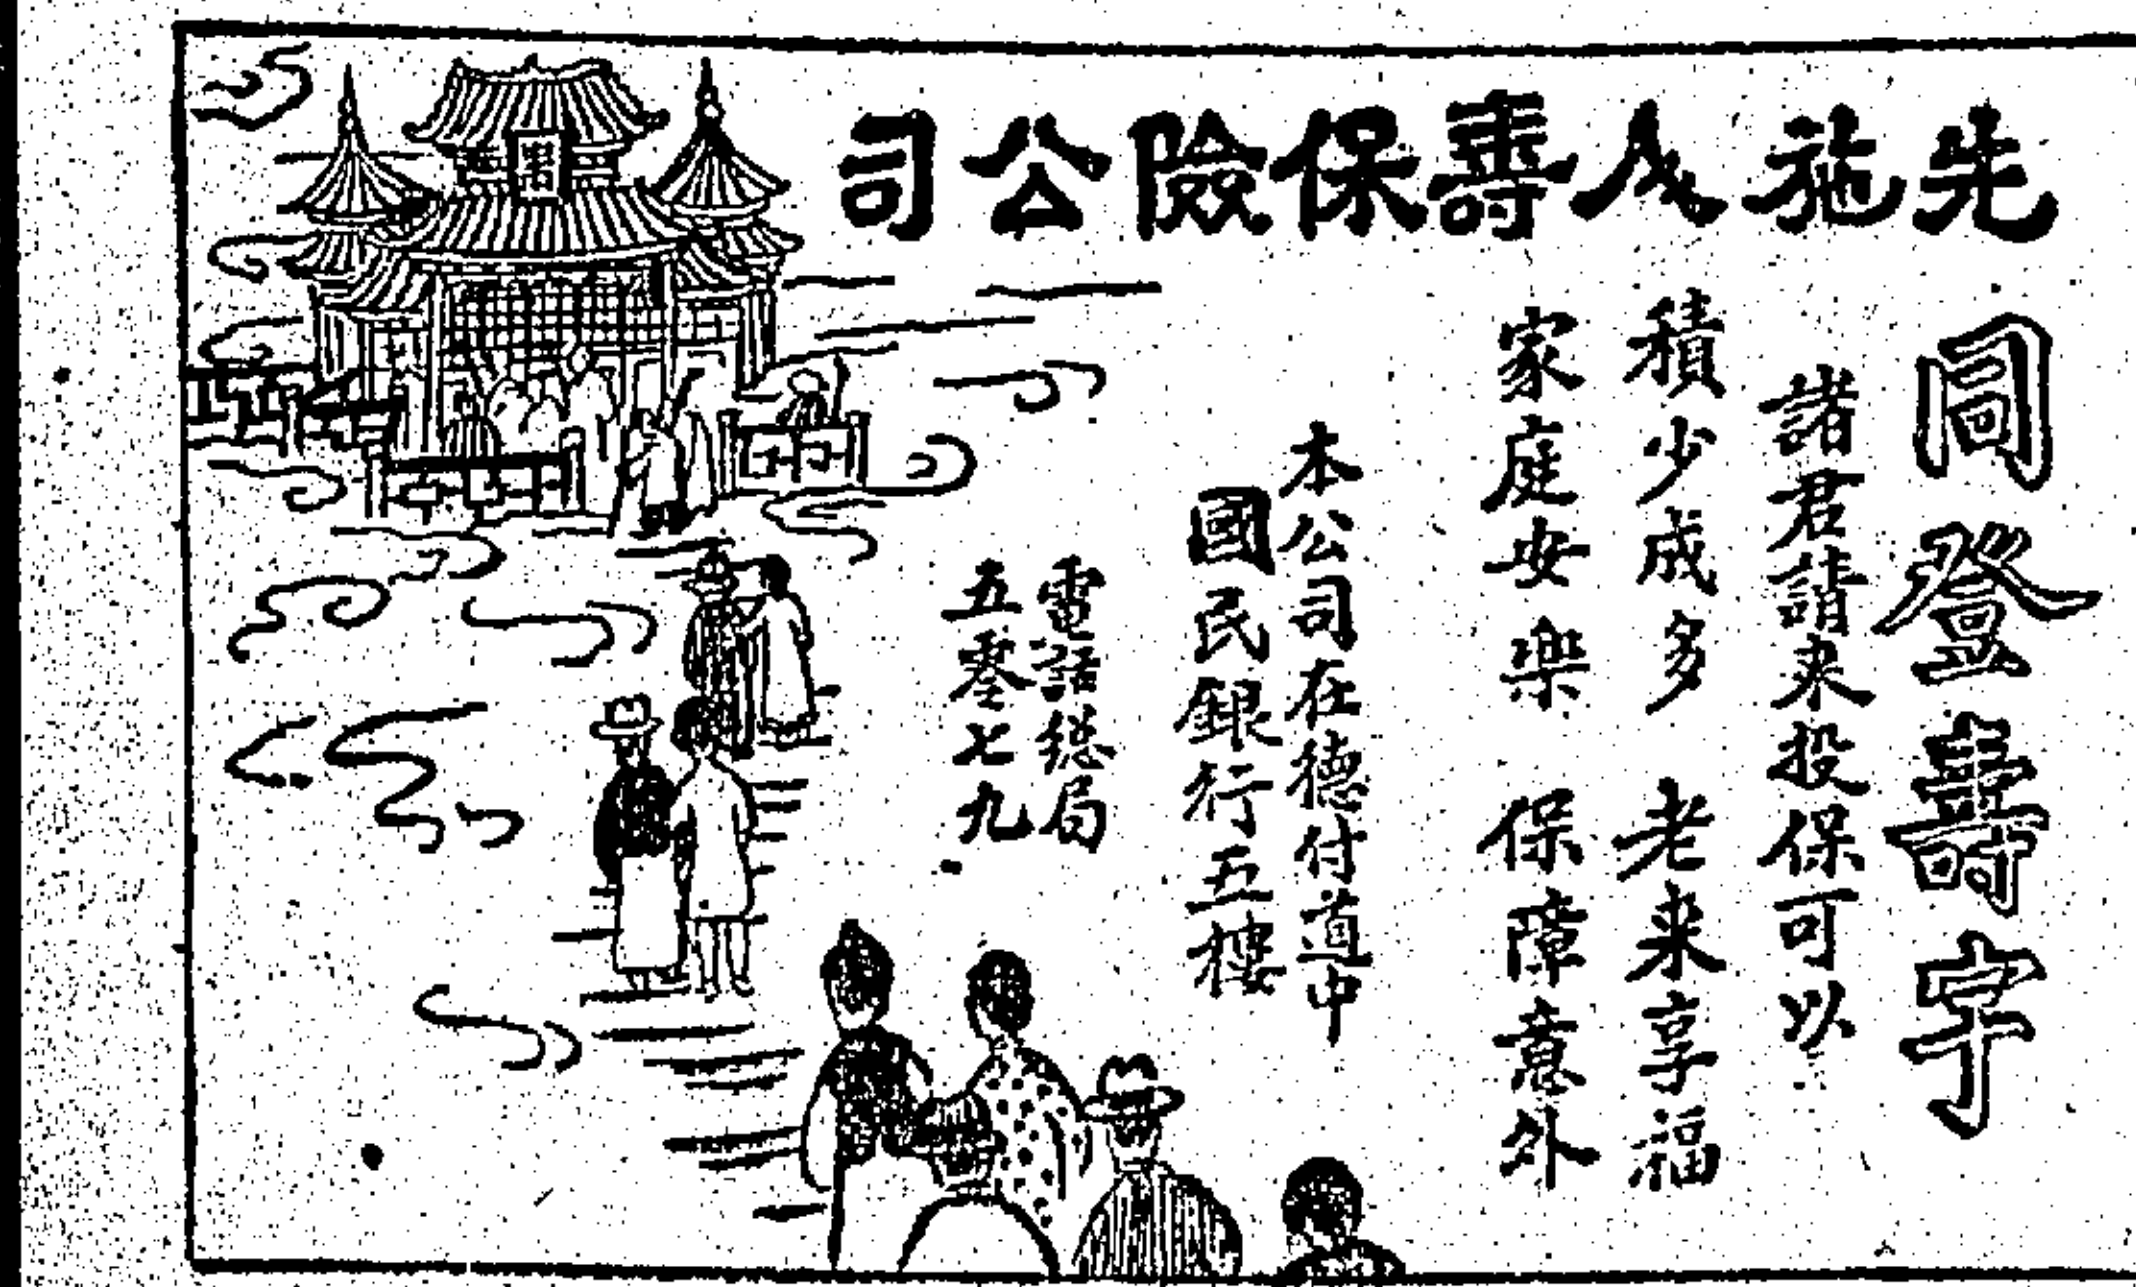 先施人壽保險公司
同登壽宇
諸君請來投保可以
積少成多 老来享福
家庭安樂 保障意外
本公司在德付道中
國民銀行五樓
電話總局
五零七九